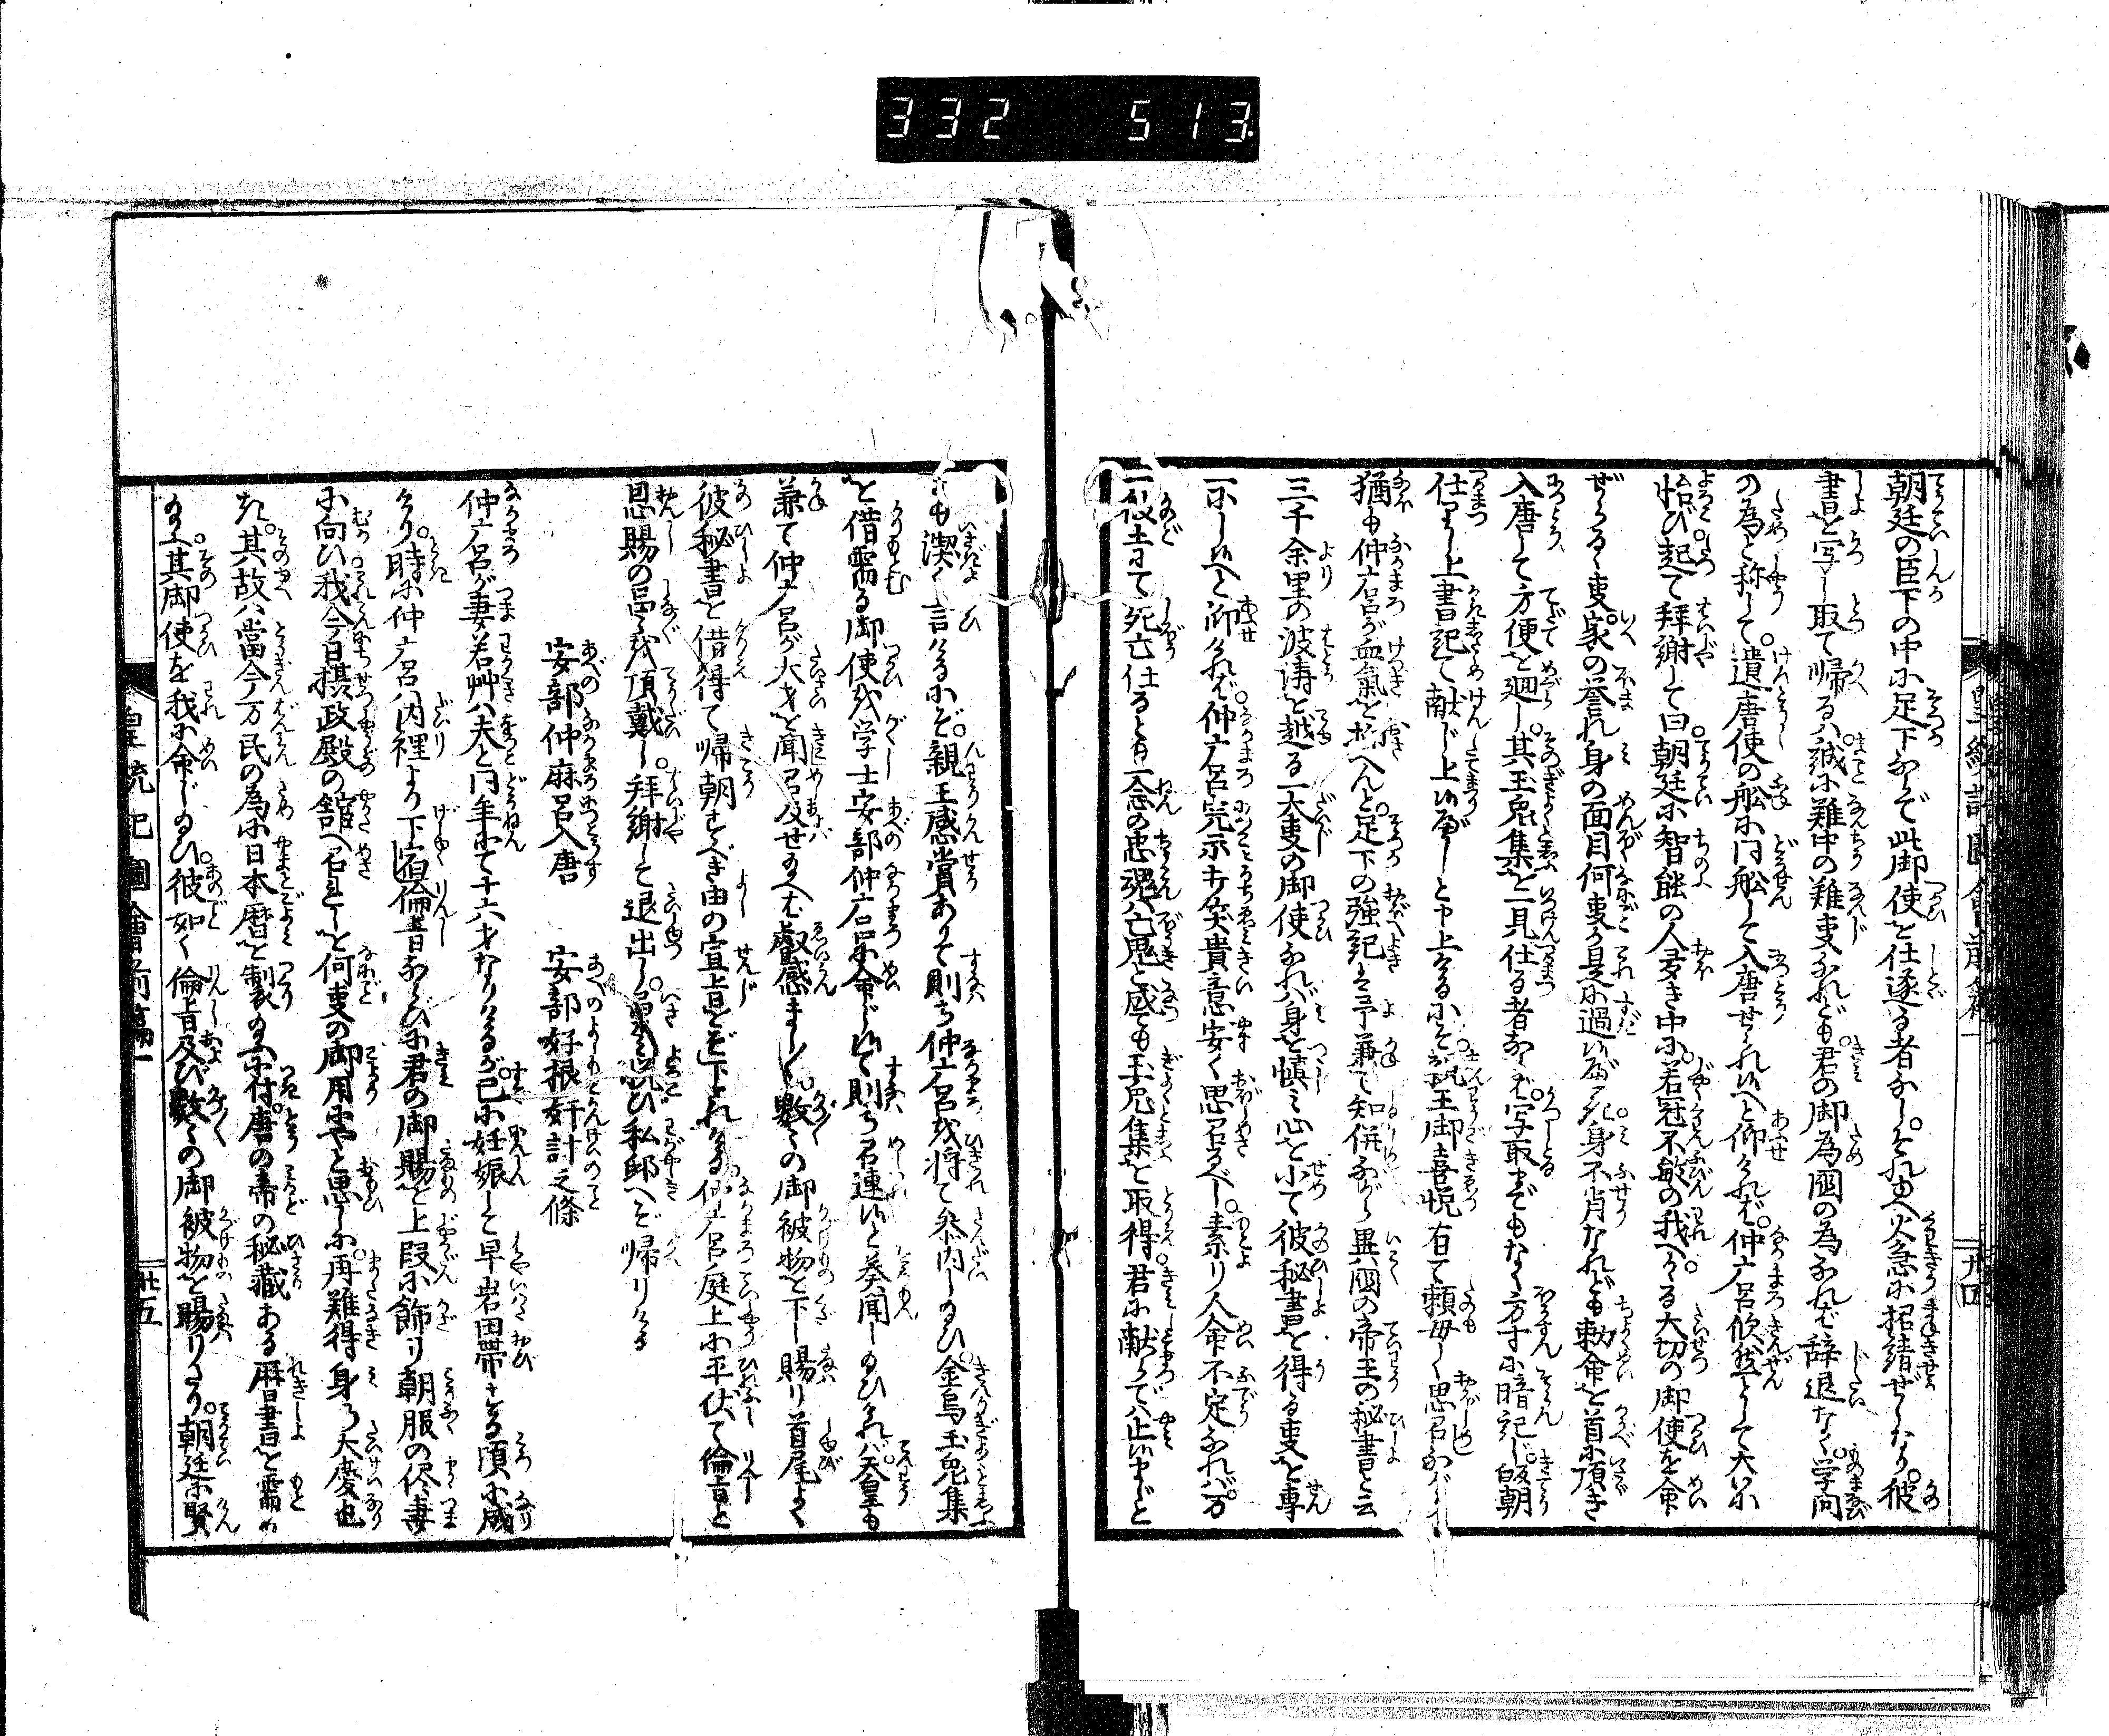 332 513
朝廷の臣下の中に足下ならで此御使を仕遂る者なし。それゆへ火急に招請ぜしなり。彼
書を写し取て帰るハ。誠に難中の難事なれども。君の御為国の為なれば辞退なく。学問
の為と称して。遣唐使の舩に同舩して入唐せられ候へと仰ければ。仲广呂欣然として大ひに
怡び。起て拝謝して曰。朝廷に智能の人多き中に。若冠不敏の我へ。かゝる大切の御使を命
ぜらるゝ事。家の誉れ身の面目何事か是に過候べき。身不肖なれども勅命を首に頂き
入唐して方便を廻し。其玉兎集を一見仕る者ならば。写取までもなく方寸に暗記じ。皈朝
仕りし上書記て献じ上候べしと申上るにぞ。親王御喜悦有て頼母しく思召ながら
猶も仲广呂が血氣を抑へんと。足下の強記は予兼て知併ながら異国の帝王の秘書と云
三千余里の波涛を越る一大事の御使なれバ身を慎み心を小て彼秘書を得る事を専
一にし候へと仰ければ。仲广呂完示キ笑貴意安く思召るべし。素り人命不定なれバ。万
一彼土にて死亡仕るとも一念の忠魂亡鬼と成ても玉兎集を取得。君に献らでハ止候まじと
も潔く言けるにぞ。親王感賞ありて則ち仲广呂を将て参内し給ひ。金烏玉兎集
を借需る御使を学士安部仲广呂に命じ候て則ち召連候と奏聞し給ひければ。天皇も
兼て仲广呂が大才を聞召及せ給へば叡感まし〳〵。数々の御被物を下し賜り首尾よく
彼秘書を借得て帰朝すべき由の宣旨をぞ下されける。仲广呂庭上に平伏て倫旨と
恩賜の品々を頂戴し。拝謝して退出し。勇み悦び私邸へぞ帰りける
安部仲麻呂入唐　安部好根奸計之條
仲广呂が妻若艸ハ夫と同年にて十六才なりけるが。已に妊娠して早岩田帯する頃に成
けり。時に仲广呂ハ内裡より下宿倫旨ならびに君の御賜を上段に飾り朝服の侭妻
に向ひ我今日摂政殿の舘へ召れしを何事の御用にやと思しに。再難得身の大慶也
き。其故ハ當今万民の為に日本暦を製給ふに付。唐の帝の秘蔵ある暦書を需め
給へ。其御使を我に命じ給ひ。彼如く倫旨及び数々の御被物を賜りたり。朝廷に賢
皇統記圖會前編一
廿四
皇統記圖會前編一
廿五